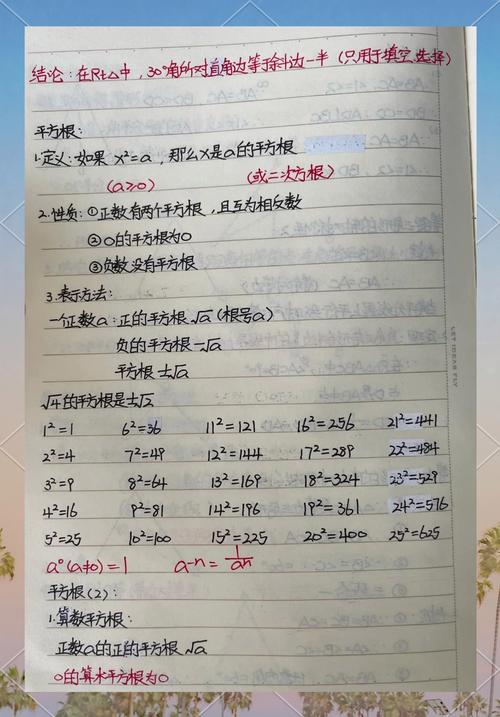 结论：在Rt△中，30°角所对直角边等于斜边一半（只用于填空、选择）
平方根：
1.定义：如果 x²=a，那么x是a的平方根
(a≥0) (或二次方根)
2.性质：①正数有两个平方根，且互为相反数
②0的平方根为0
③负数没有平方根
3.表示方法：
一个正数a：正的平方根√a（根号a）
负的平方根-√a
平方根±√a
√4的平方根是±√2
1²=1 6²=36 11²=121 16²=256 21²=441
2²=4 7²=49 12²=144 17²=289 22²=484
3²=9 8²=64 13²=169 18²=324 23²=529
4²=16 9²=81 14²=196 19²=361 24²=576
5²=25 10²=100 15²=225 20²=400 25²=625
a⁰(a≠0)=1 a-n=1/an
平方根(2)：
1.算数平方根：
正数a的正的平方根√a
0的算术平方根为0
LET IDEAS FLY